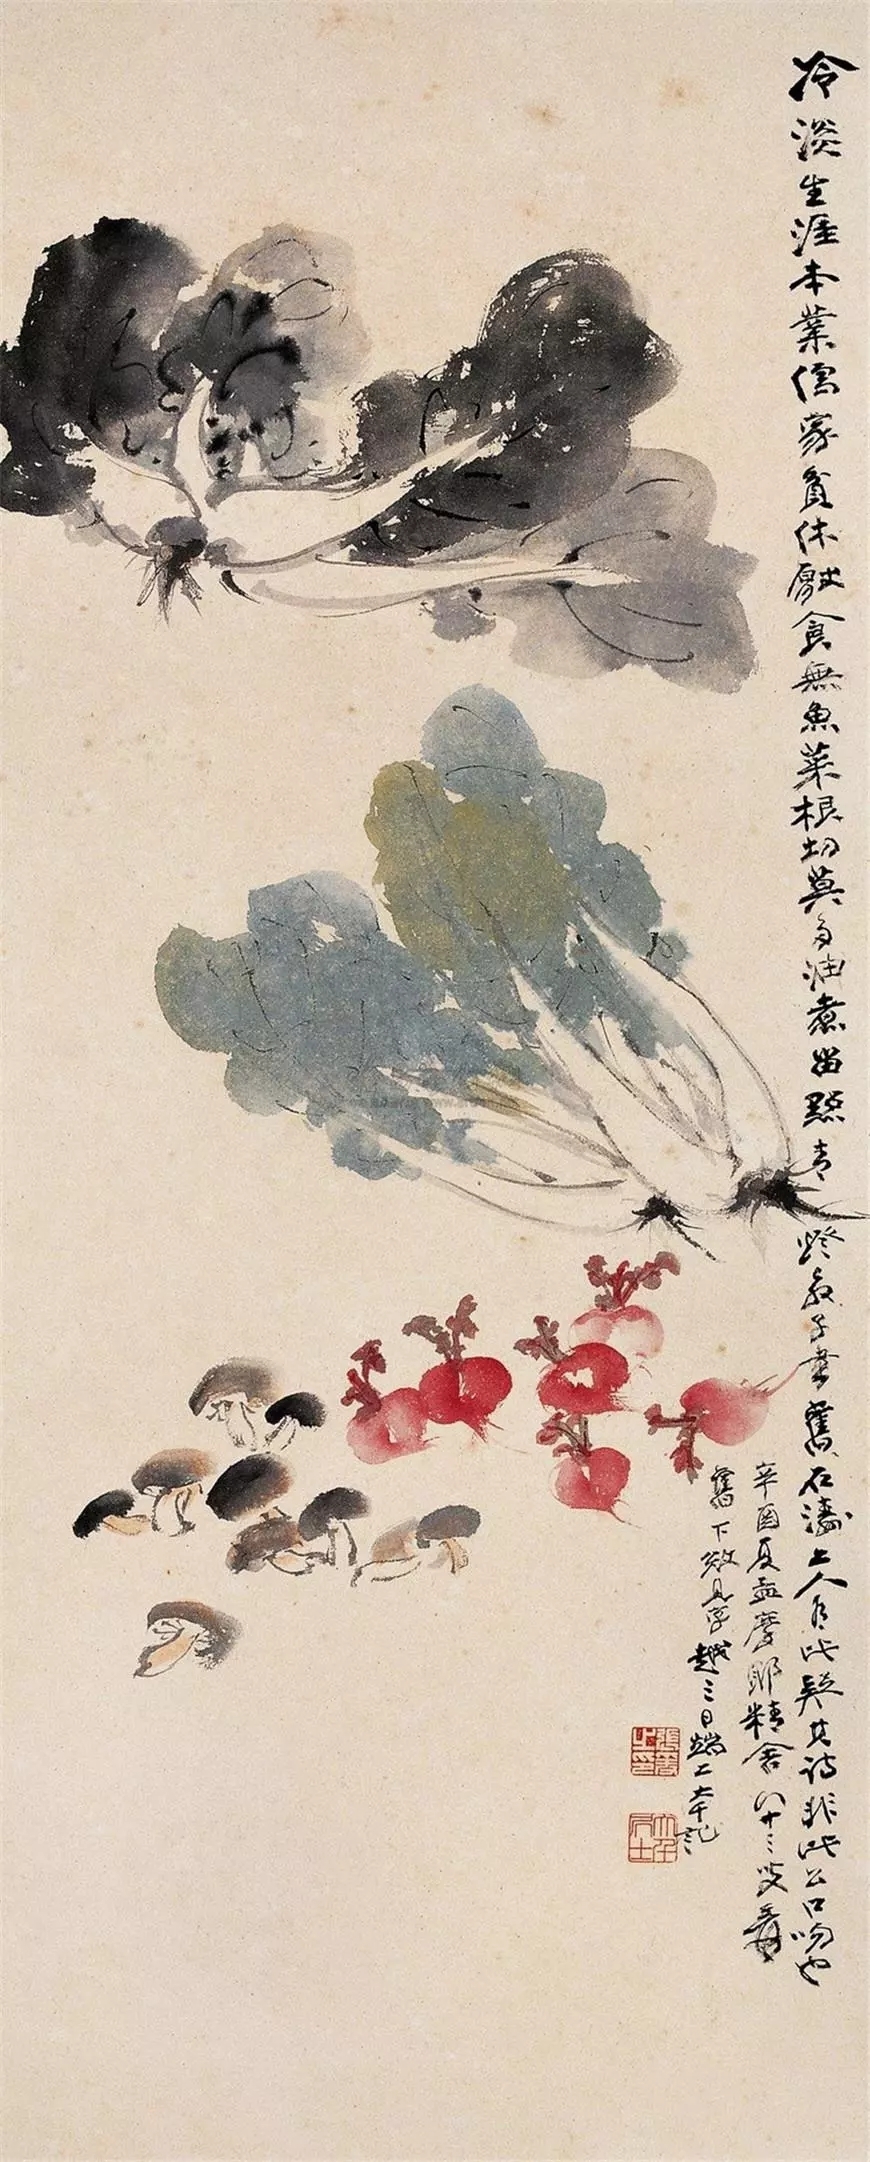 冷淡生涯本業儒家貧休厭食無魚菜根切莫多油煮留點青燈教子書舊石濤上人有此疑其詩非此公口吻也
辛酉夏孟摩耶精舍八十三叟爰
舊下效見字越三日端工大千記
張爰之印
大千居士